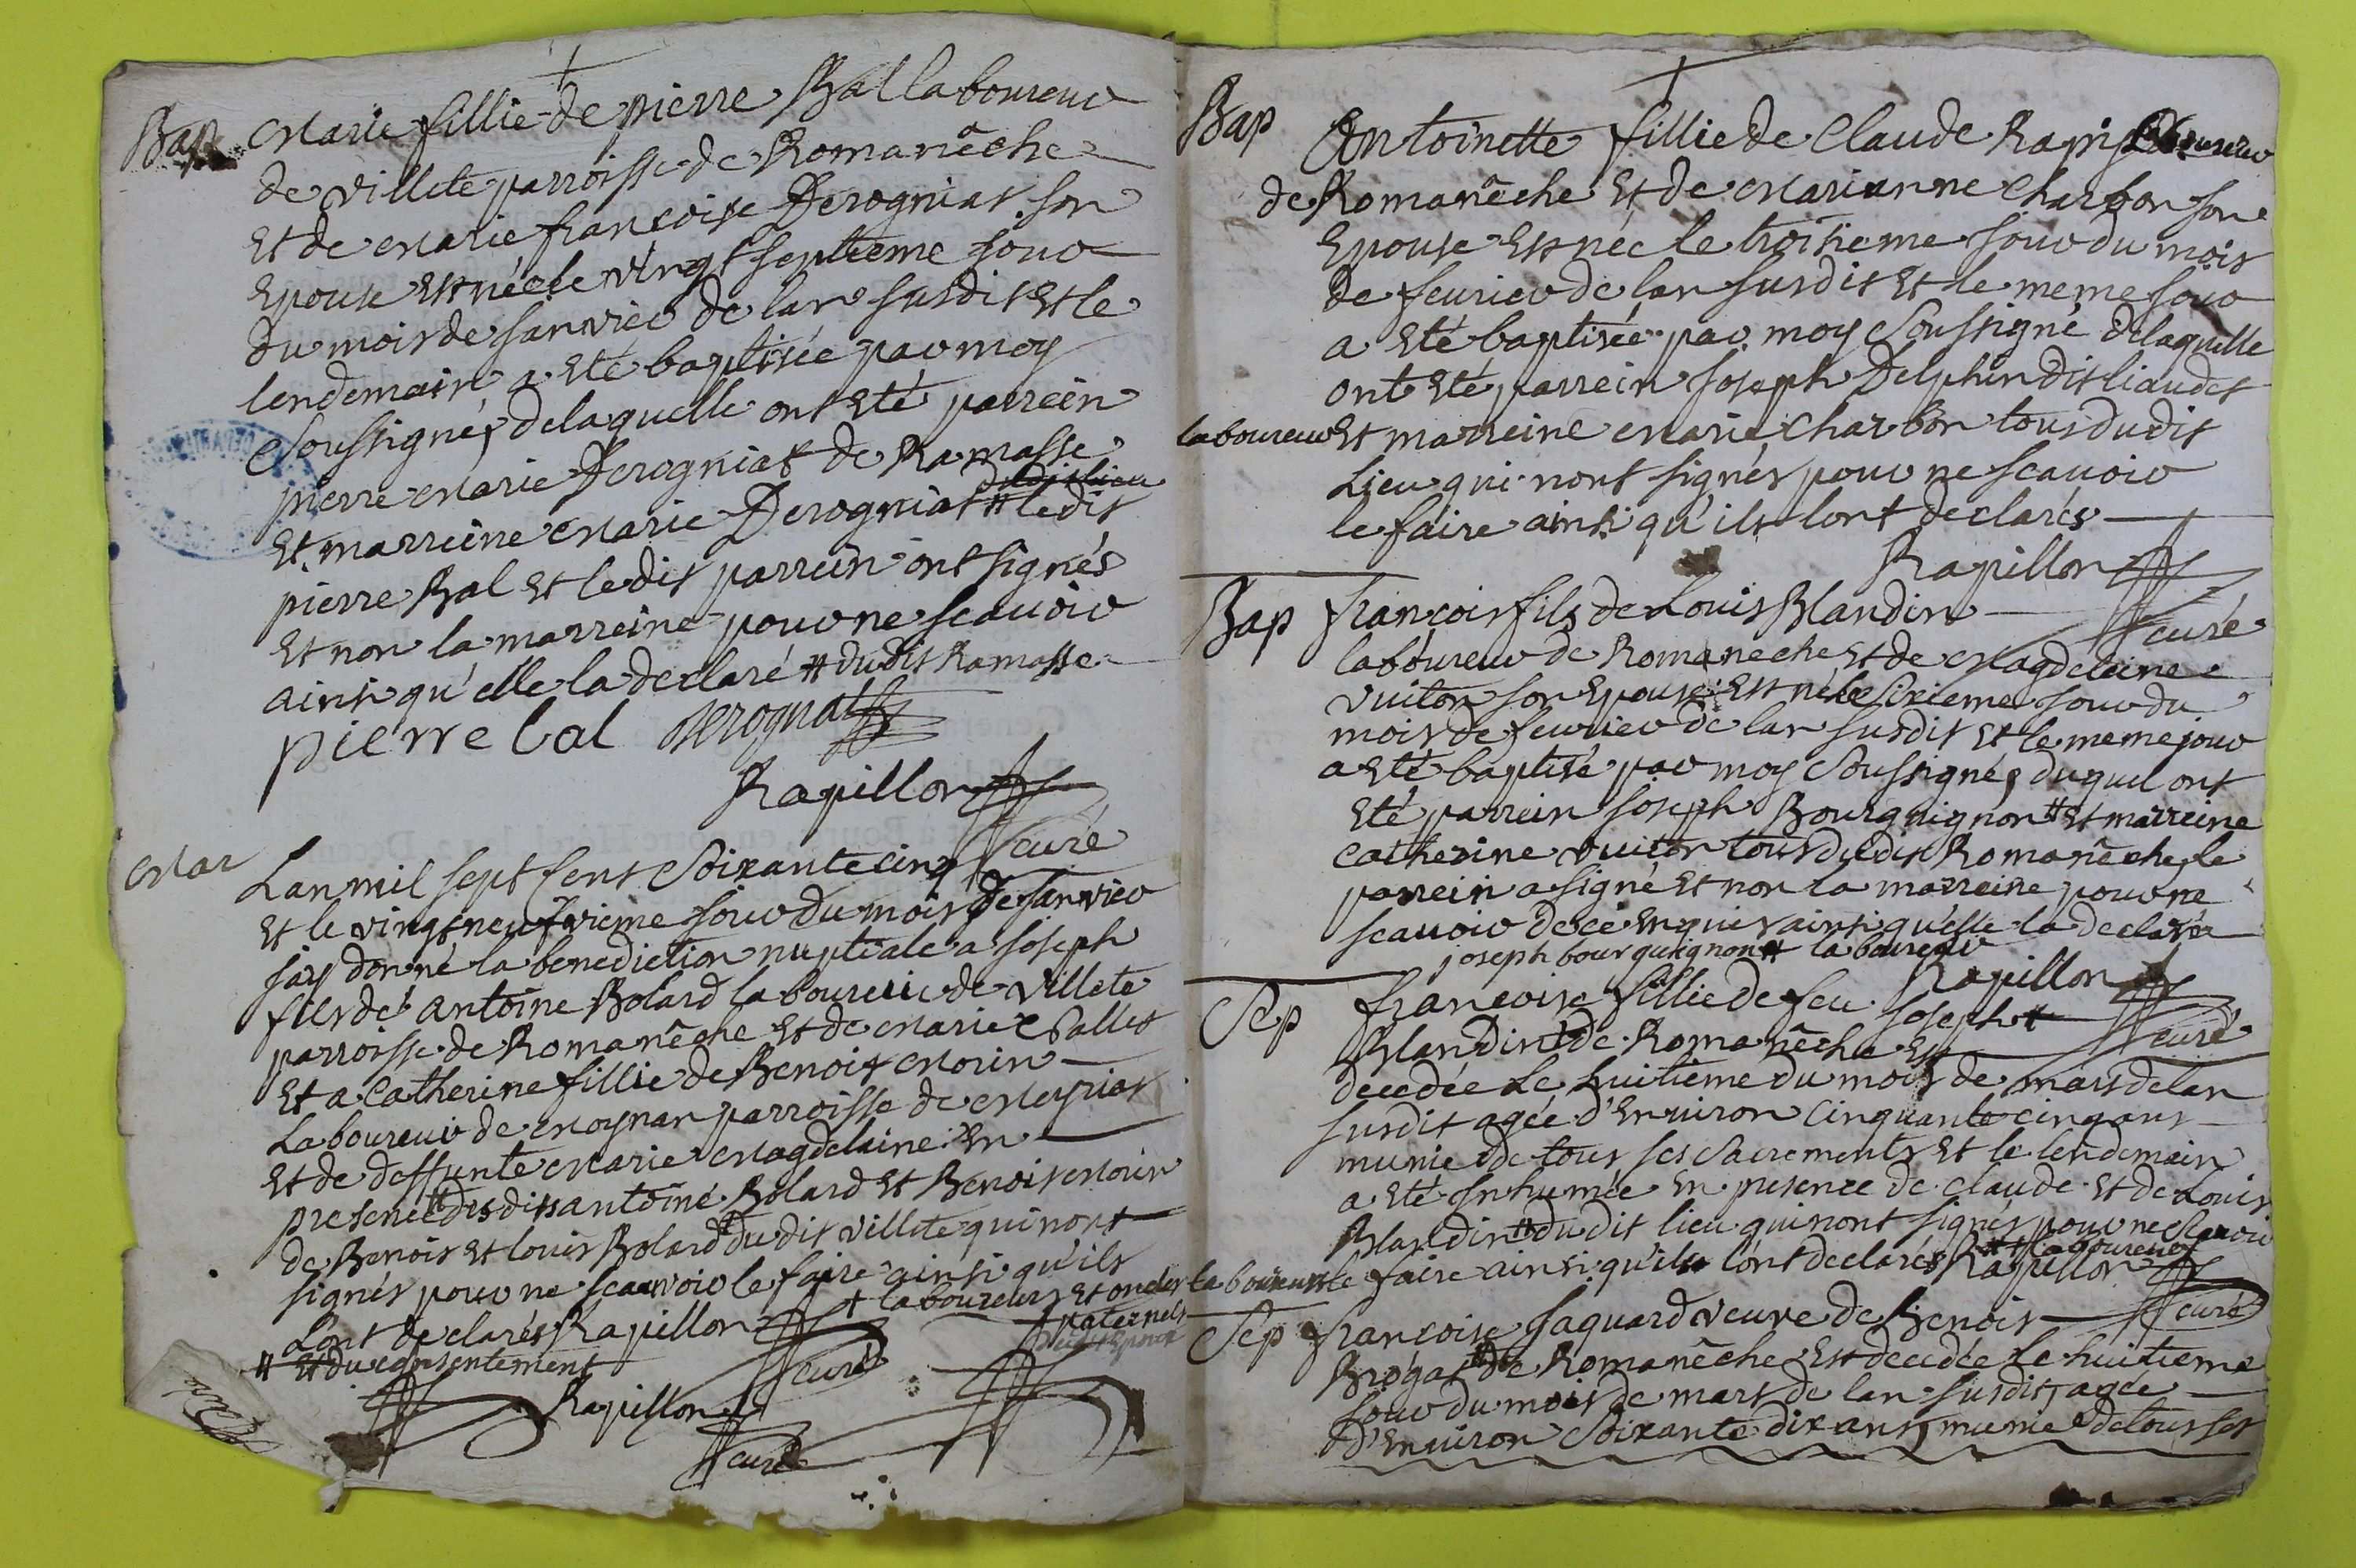 Bap Marie fillie de pierre Bal laboureur
de villete parroisse de Romanêche
Et de Marie françoise Derogniat son
Epouse Est née le vingt septieme jour
du mois de janvier de lan susdit Et le
lendemain a Eté baptisée par moy
Soussigné, delaquelle ont Eté parrein
pierre Marie Derogniat de Ramasse
Et marreine Marie Derogniat # le dit
pierre Bal Et le dit parrein ont signés
Et non la marreine pour ne scauoir
ainsi qu'elle la declaré # dudit Ramasse
pierre bal derogniat
Rapillon
curé
Mar Lan mil sept cent Soixante cinq
Et le vingt neufvieme jour du mois de janvier
jay donné la benediction nuptiale a joseph
fils de antoine Bolard laboureur de villete
parroisse de Romanêche Et de Marie Pallet
Et a Catherine fillie de Benoit Morin
Laboureur de Moynan parroisse de Meyriat
Et de deffunte Marie Magdelaine En
presence # desdits antoine Bolard Et Benoit Morin
de Benoit Et louis Bolard + du dit villete qui nont
signés pour ne scauvoir le faire ainsi qu'ils
Lont declarés Rapillon + laboureurs Et oncles
paternels
curé
# Et du consentement
Rapillon
curé
Bap Antoinette fillie de Claude Rapy laboureur
de Romanêche Et de Marianne Charbon son
Epouse Est née le troisieme jour du mois
de feurier de lan susdit Et le meme jour
a Eté baptisée par moy Soussigné delaquelle
ont Eté parrein joseph Delphin dit liaudet
laboureur Et marreine Marie Charbon tous dudit
Lieu qui nont signés pour ne scauoir
le faire ainsi qu'ils lont declarés
Rapillon
curé
Bap françois fils de Louis Blandin
laboureur de Romaneche Et de Magdeleine
vuiton son Epouse Est né le Sixieme jour du
mois de feurier de lan susdit Et le meme jour
a Eté baptisé par moy Soussigné, duquel ont
Eté parrein joseph Bourguignon # Et marreine
Catherine vuiton tous dudit Romanêche, le
parrein a signé Et non la marreine pour ne
scauoir de ce Enquis ainsi qu'elle la declaré
joseph bourguignon # laboureur
Rapillon
curé
Sep françoise fillie de feu joseph
Blandin de Romanêche Est
decedée Le huitieme du mois de mars de lan
susdit agée d'Enuiron Cinquante cinq ans
munie de tous ses Sacrements Et le lendemain
a Eté Inhumée En presence de Claude Et de Louis
Blandin # du dit lieu qui nont signés pour ne Scauoir
le faire ainsi qu'ils lont declarés Rapillon
# laboureurs
curé
Sep françoise jaguard veuve de Benoit
Brogat de Romanêche Est decedée Le huitieme
jour du mois de mars de lan susdit, agée
d'Enuiron Soixante dix ans, munie de tous ses